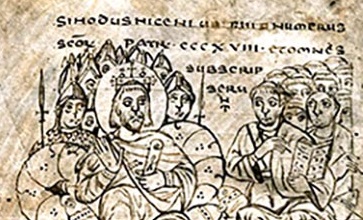 SINODUS NICENI UBI NUMERUS
SCOR̄ PATR CCCXVIII ET OMNES
SUBSCRIP
SERU
NT